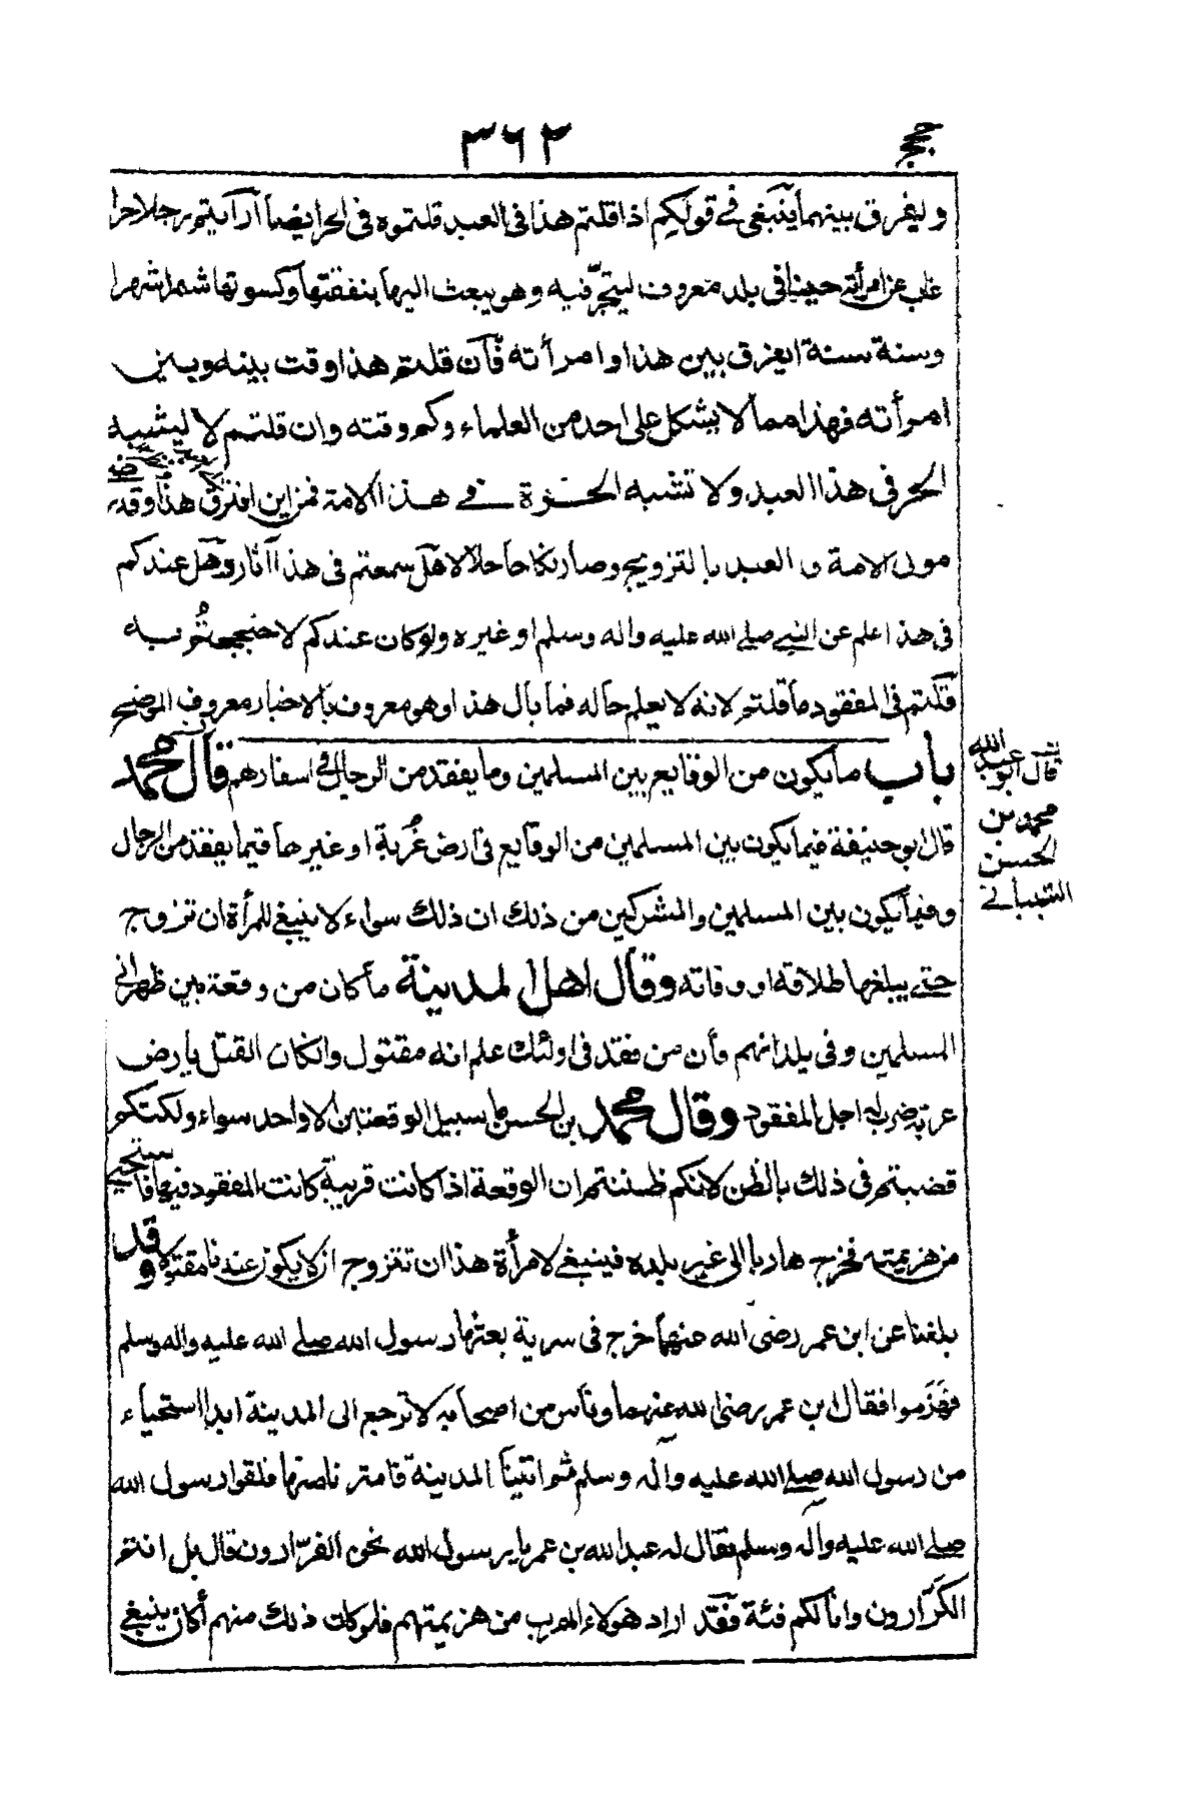 حجج
٣٦٢
وليفرق بينهما ينبغي في قولكم اذا قلتم هذا في العبد قلتموه في الحر ايضا ارأيتم رجلا حرا
غاب عن امرأته حينا في بلد معروف ليتجر فيه وهو يبعث اليها بنفقتها وكسوتها شهرا شهرا
وسنة سنة ايفرق بين هذا وامرأته فان قلتم هذا وقت بينه وبين
امرأته فهذا مما لا يشكل على احد من العلماء وكم وقته وان قلتم لا ليشبه
الحر في هذا العبد ولا تشبه الحرة في هذا الامة فمن اين افترق هذا وقد رضى
مولى الامة والعبد بالتزويج وصار نكاحا حلالا هل سمعتم في هذا آثار وهل عندكم
في هذا علم عن النبي صلى الله عليه واله وسلم او غيره ولو كان عندكم لاحتججتم به
قلتم في المفقود ما قلتم لانه لا يعلم حاله فما بال هذا وهو معروف بالاخبار معروف الموضع
باب ما يكون من الوقايع بين المسلمين وما يفقد من الرجال في اسفارهم قال محمد
قال ابو عبد الله
محمد بن
الحسن
الشيباني
قال ابو حنيفة فيما يكون بين المسلمين من الوقايع في ارض غربة او غيرها فيما يفقد من الرجال
وفيما يكون بين المسلمين والمشركين من ذلك ان ذلك سواء لا ينبغي للمرأة ان تزوج
حتى يبلغها طلاقه او وفاته وقال اهل المدينة ما كان من وقعة بين ظهراني
المسلمين وفي بلدانهم فان من فقد في اولئك علم انه مقتول وان كان القتل بارض
غربة ضرب له اجل المفقود وقال محمد بن الحسن ما سبيل الوقعتين الا واحد سواء ولكنكم
قضيتم في ذلك بالظن لانكم ظننتم ان الوقعة اذا كانت قريبة كانت المفقود فيها فاستحيى
من هزيمته فخرج هاربا الى غير بلده فينبغي لامرأة هذا ان تتزوج ان لا يكون عندنا مقتولا وقد
بلغنا عن ابن عمر رضى الله عنهما خرج في سرية بعثها رسول الله صلى الله عليه واله وسلم
فهزموا فقال ابن عمر رضى الله عنهما وناس من اصحابه لا نرجع الى المدينة ابدا استحياء
من رسول الله صلى الله عليه واله وسلم ثم اتينا المدينة فلقوا رسول الله
صلى الله عليه واله وسلم فقال له عبد الله بن عمر يا رسول الله نحن الفرارون قال بل انتم
الكرارون وانا لكم فئة فقد اراد هولاء الهرب من هزيمتهم فلو كان ذلك منهم أكان ينبغي